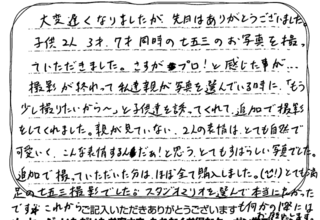 大変遅くなりましたが、先日はありがとうございました。
子供2人 3才、7才 同時の七五三のお写真を撮っ
ていただきました。さすが プロ！と感じた事が…
撮影が終わって私達親が写真を選んでいる時に、「もう
少し撮りたいから〜」と子供達を誘ってくれて、追加で撮影
をしてくれました。親が見ていない、2人の表情は、とても自然で
可愛いく、こんな表情するんだぁ！と思う、とてもすばらしい写真でした。
追加で撮っていただいた分は、ほぼ全て購入しました。(笑)とても満
足の七五三撮影でした スタジオマリオを選んで本当によかった
です これから 何かの際には
ご記入いただきありがとうございます